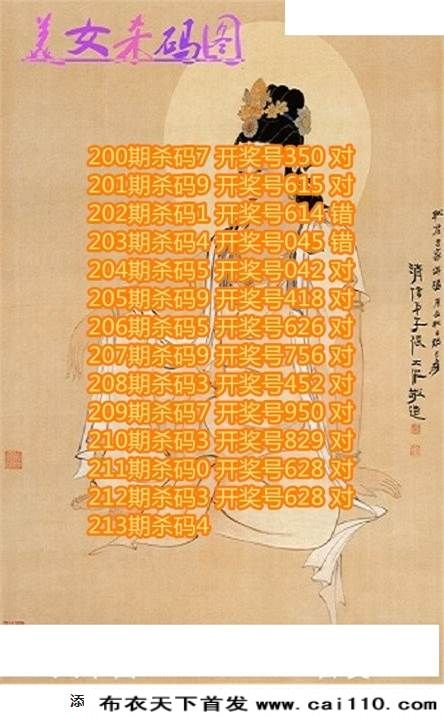 美女杀码图
200期杀码7 开奖号350 对
201期杀码9 开奖号615 对
202期杀码1 开奖号614 错
203期杀码4 开奖号045 错
204期杀码5 开奖号042 对
205期杀码9 开奖号418 对
206期杀码5 开奖号626 对
207期杀码9 开奖号756 对
208期杀码3 开奖号452 对
209期杀码7 开奖号950 对
210期杀码3 开奖号829 对
211期杀码0 开奖号628 对
212期杀码3 开奖号628 对
213期杀码4
添 布衣天下首发 www.cai110.com